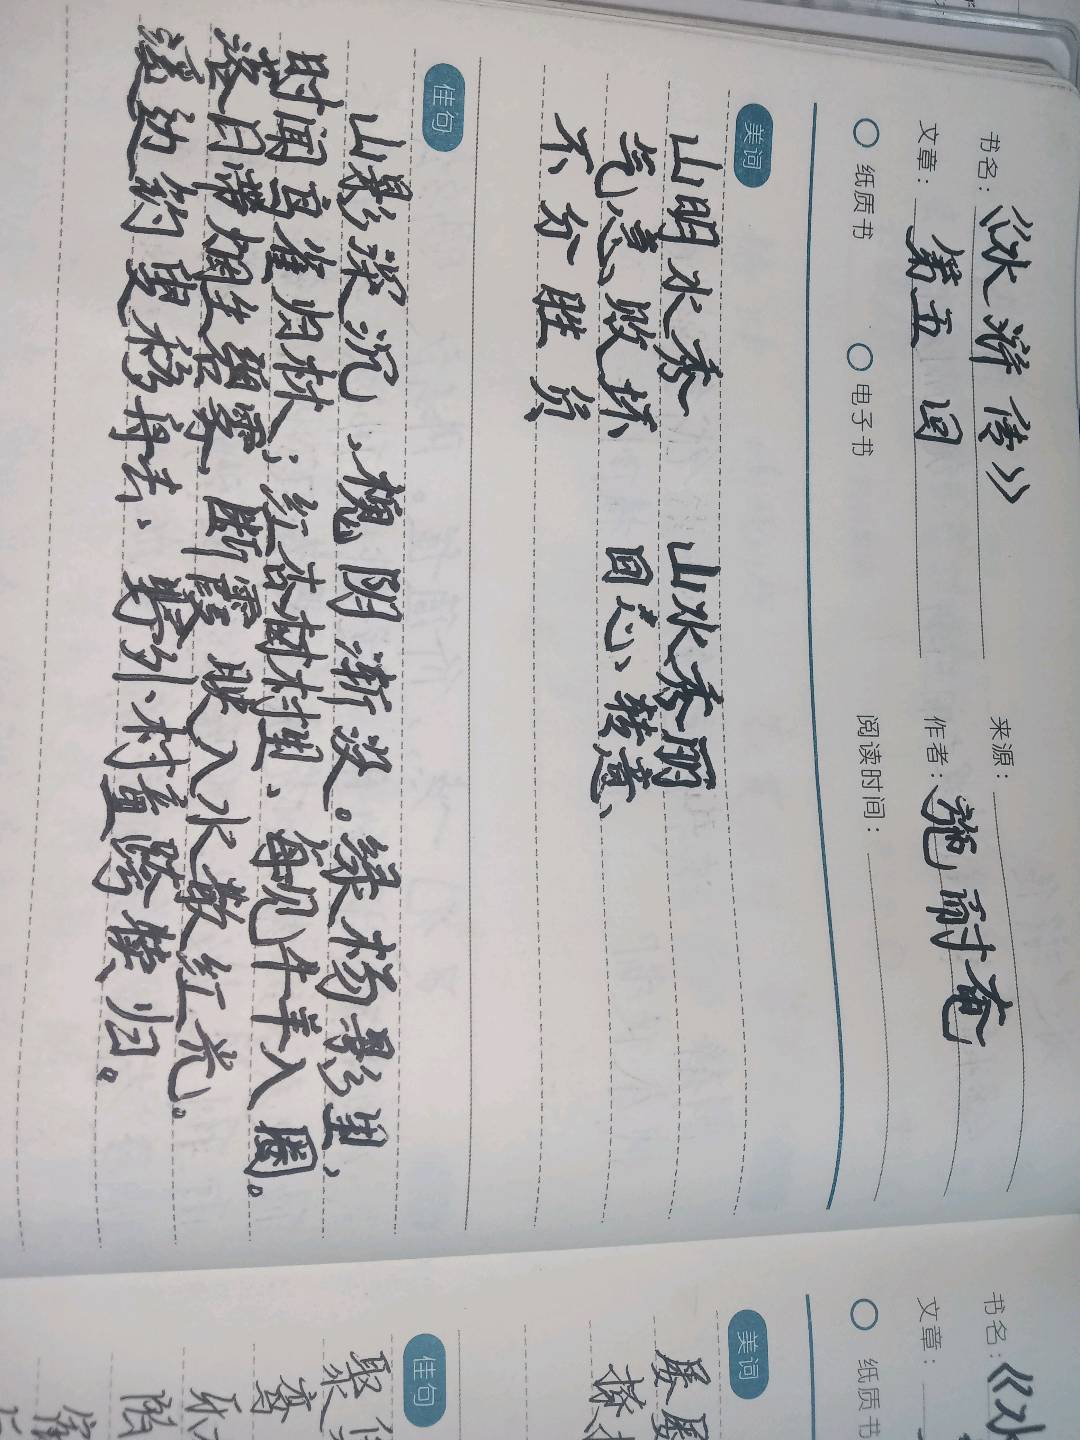 书名：《水浒传》
来源：
文章：第五回
作者：施耐奄
纸质书 电子书 阅读时间：
美词
山明水秀 山水秀丽
气急败坏 回心转意
不分胜负
佳句
山影深沉，槐阴渐没。绿杨影里，
时闻鸟雀归林；红杏村村里，每见牛羊入圈。
落日带烟生碧雾，断霞映入水散红光。
溪边钓叟移舟去，野外村童跨犊归。
书名：《水
文章：
纸质书
美词
佳句